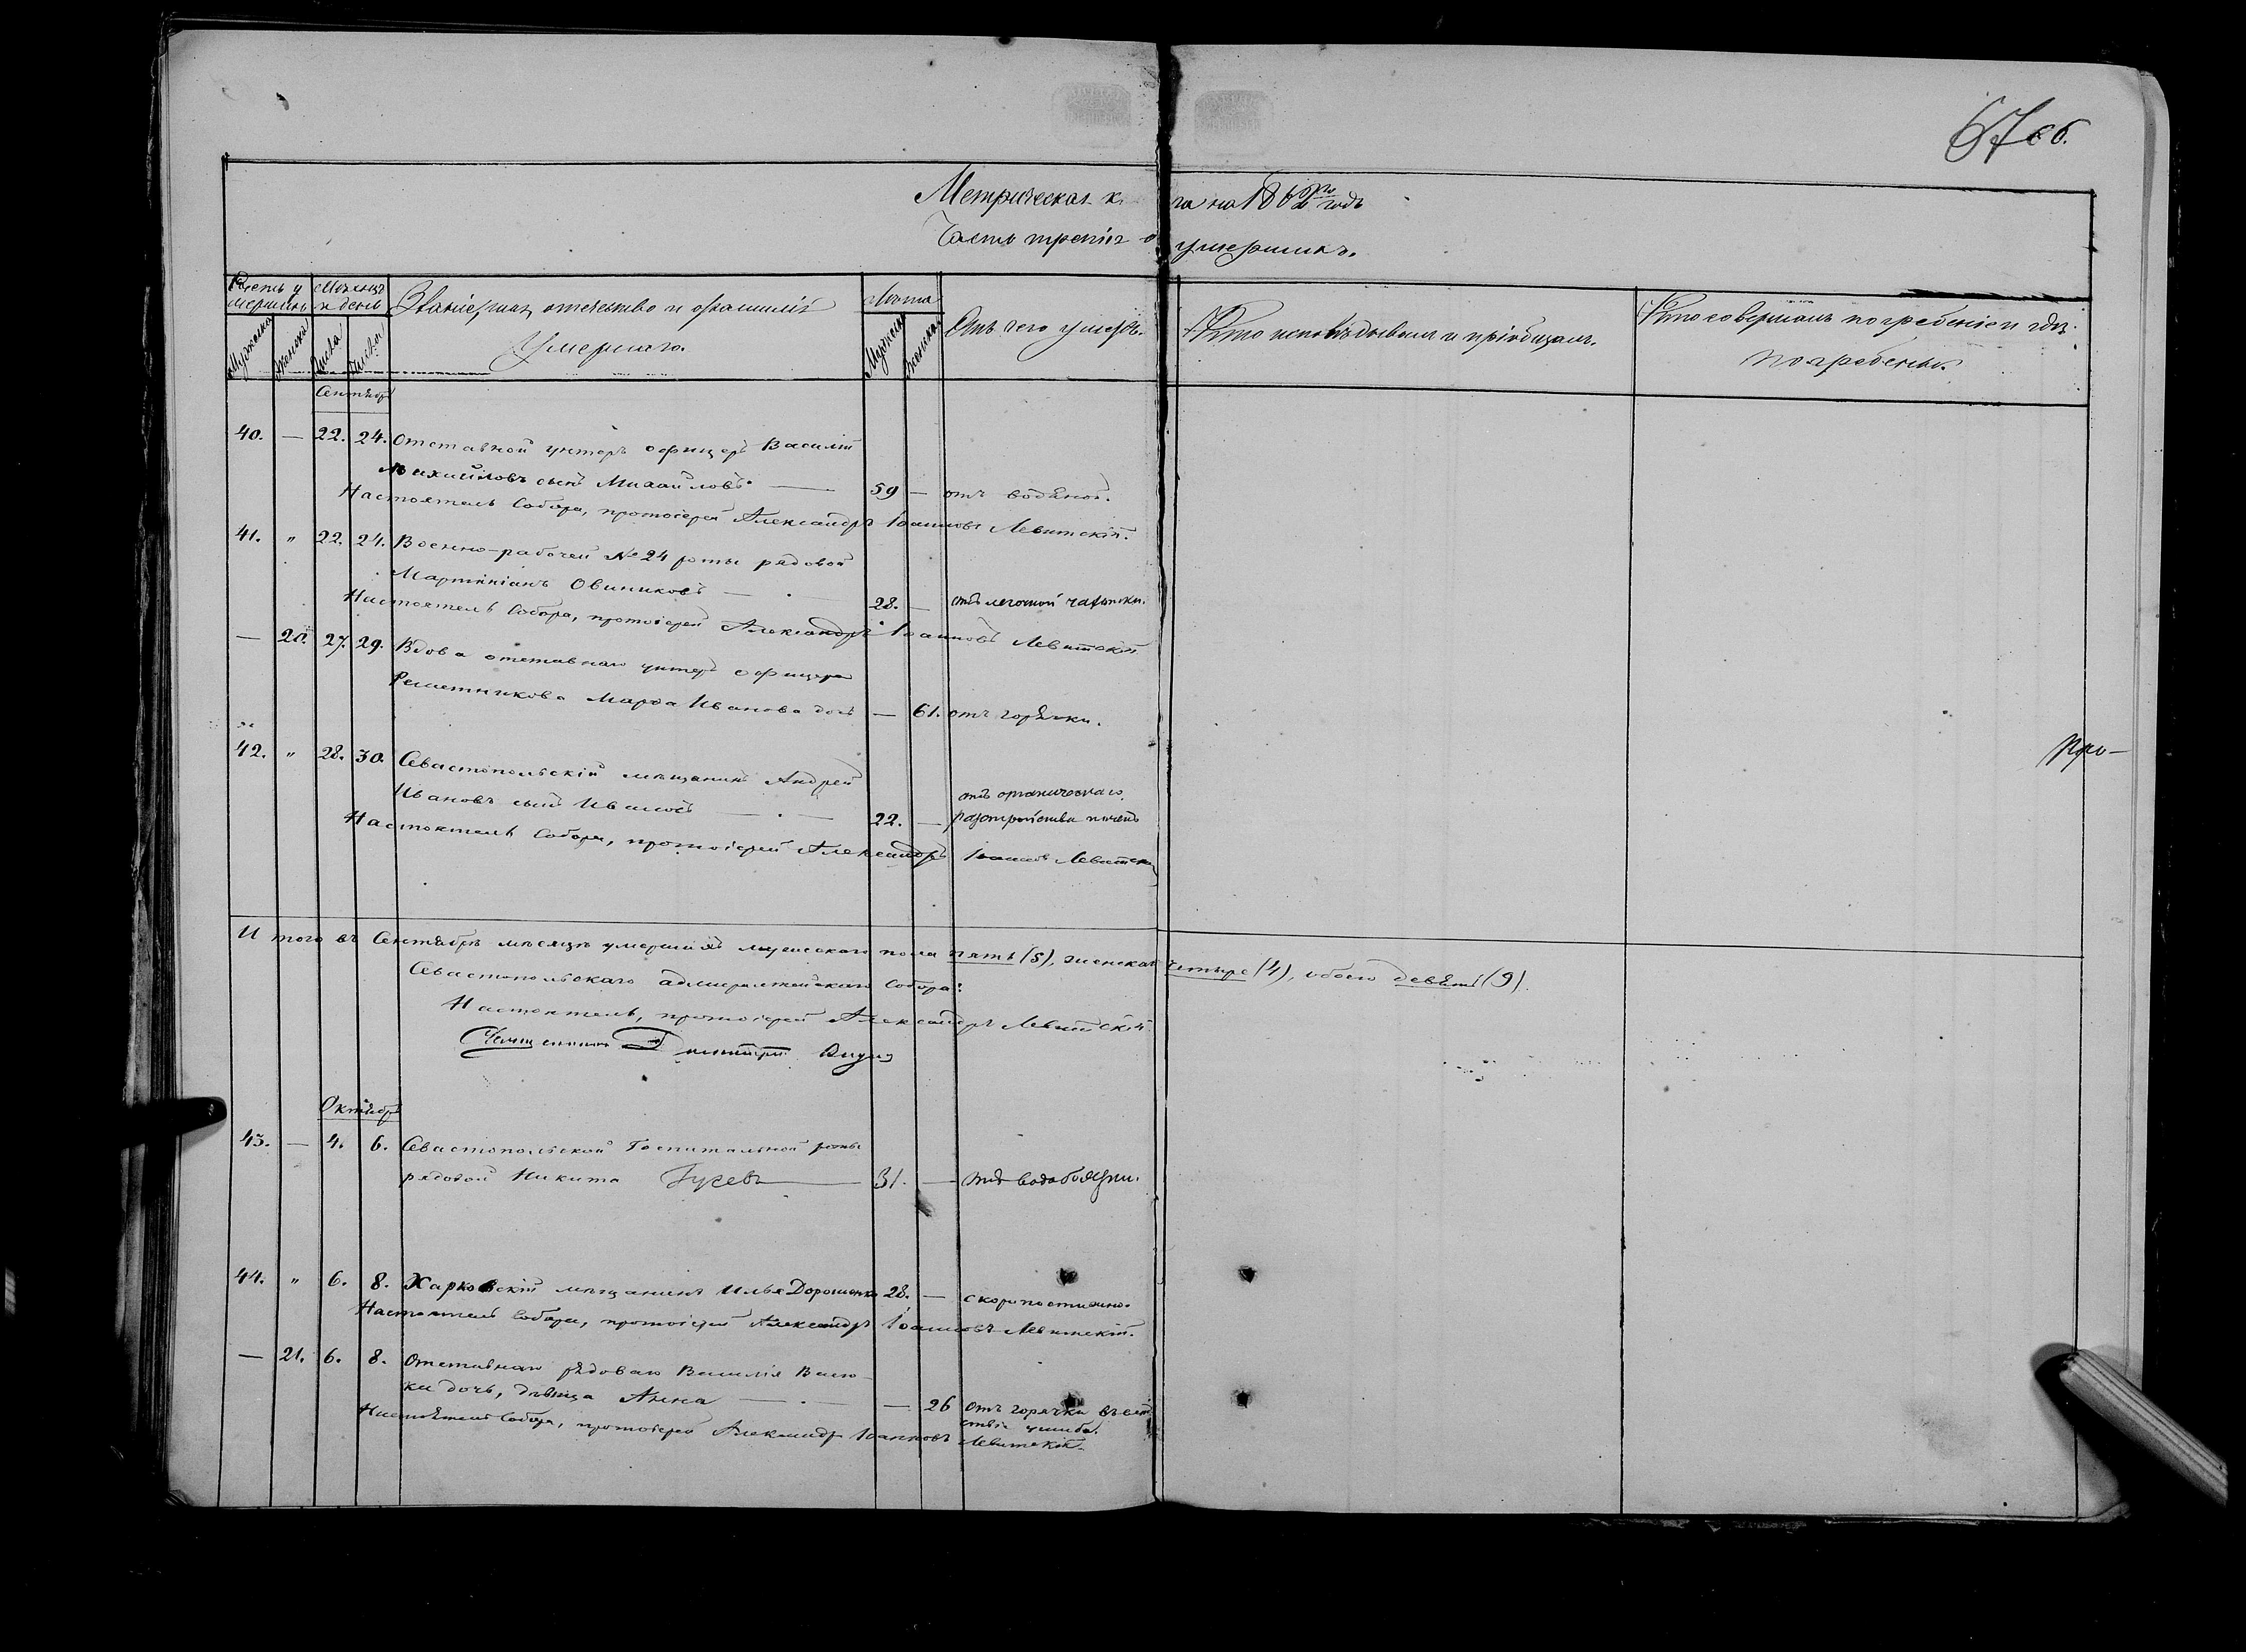 67 об.
Метрическая к га на 186 годъ
Часть третія о умершихъ.
Счетъ у мершихъ
Мѣсяцъ и день
Званіе, имя, отечество и фамилія Умершаго.
Лѣта
Отъ чего умеръ.
Кто исповѣдывалъ и пріобщалъ.
Кто совершалъ погребеніе и гдѣ погребены.
Мужеска Женска Мужеска Женска
Сентябрь
40. — 22. 24. Отставной унтеръ офицеръ Василій
Михайловъ сынъ Михайловъ. — 59 — отъ водяной.
Настоятель Собора, протоіерей Александръ Іоанновъ Левитскій.
41. " 22. 24. Военно-рабочей № 24 роты рядовой
Мартиніанъ Овиниковъ — 28. — отъ легочной чахотки.
Настоятель Собора, протоіерей Александръ Іоанновъ Левитскій
— 20. 27. 29. Вдова отставнаго унтеръ офицера
Решетникова Марѳа Иванова дочь — 61. отъ горячки.
42. " 28. 30. Севастопольскій мѣщанинъ Андрей
Ивановъ сынъ Ивановъ — 22. — отъ органическаго разстройства печени
Настоятель Собора, протоіерей Александръ Іоанновъ Левитскій
Про-
Итого въ Сентябрѣ мѣсяцѣ умершихъ мужескаго пола пять (5), женскаго четыре (4), обоего девять (9).
Севастопольскаго адмиралтейскаго Собора:
Настоятель, протоіерей Александръ Левитскій
Димитрій
Октябрь
43. — 4. 6. Севастопольской Госпитальной роты
рядовой Никита Гусевъ — 31. — отъ водобоязни.
44. " 6. 8. Харковскій мѣщанинъ Илья Дорошенко 28. — скоропостижно.
Настоятель Собора, протоіерей Александръ Іоанновъ Левитскій.
— 21. 6. 8. Отставнаго рядоваго Василія Васю-
ки дочь, дѣвица Анна — — 26 отъ горячки
ушиба.
Настоятель Собора, протоіерей Александръ Іоанновъ Левитскій.